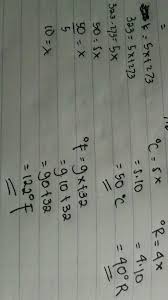 K = 5x+273
323 = 5x+273
323-273 = 5x
50 = 5x
50/5 = x
10 = x
°C = 5x
= 5.10
= 50°C
°F = 9x+32
= 9.10+32
= 90+32
= 122°F
°R = 4x
= 4.10
= 40°R